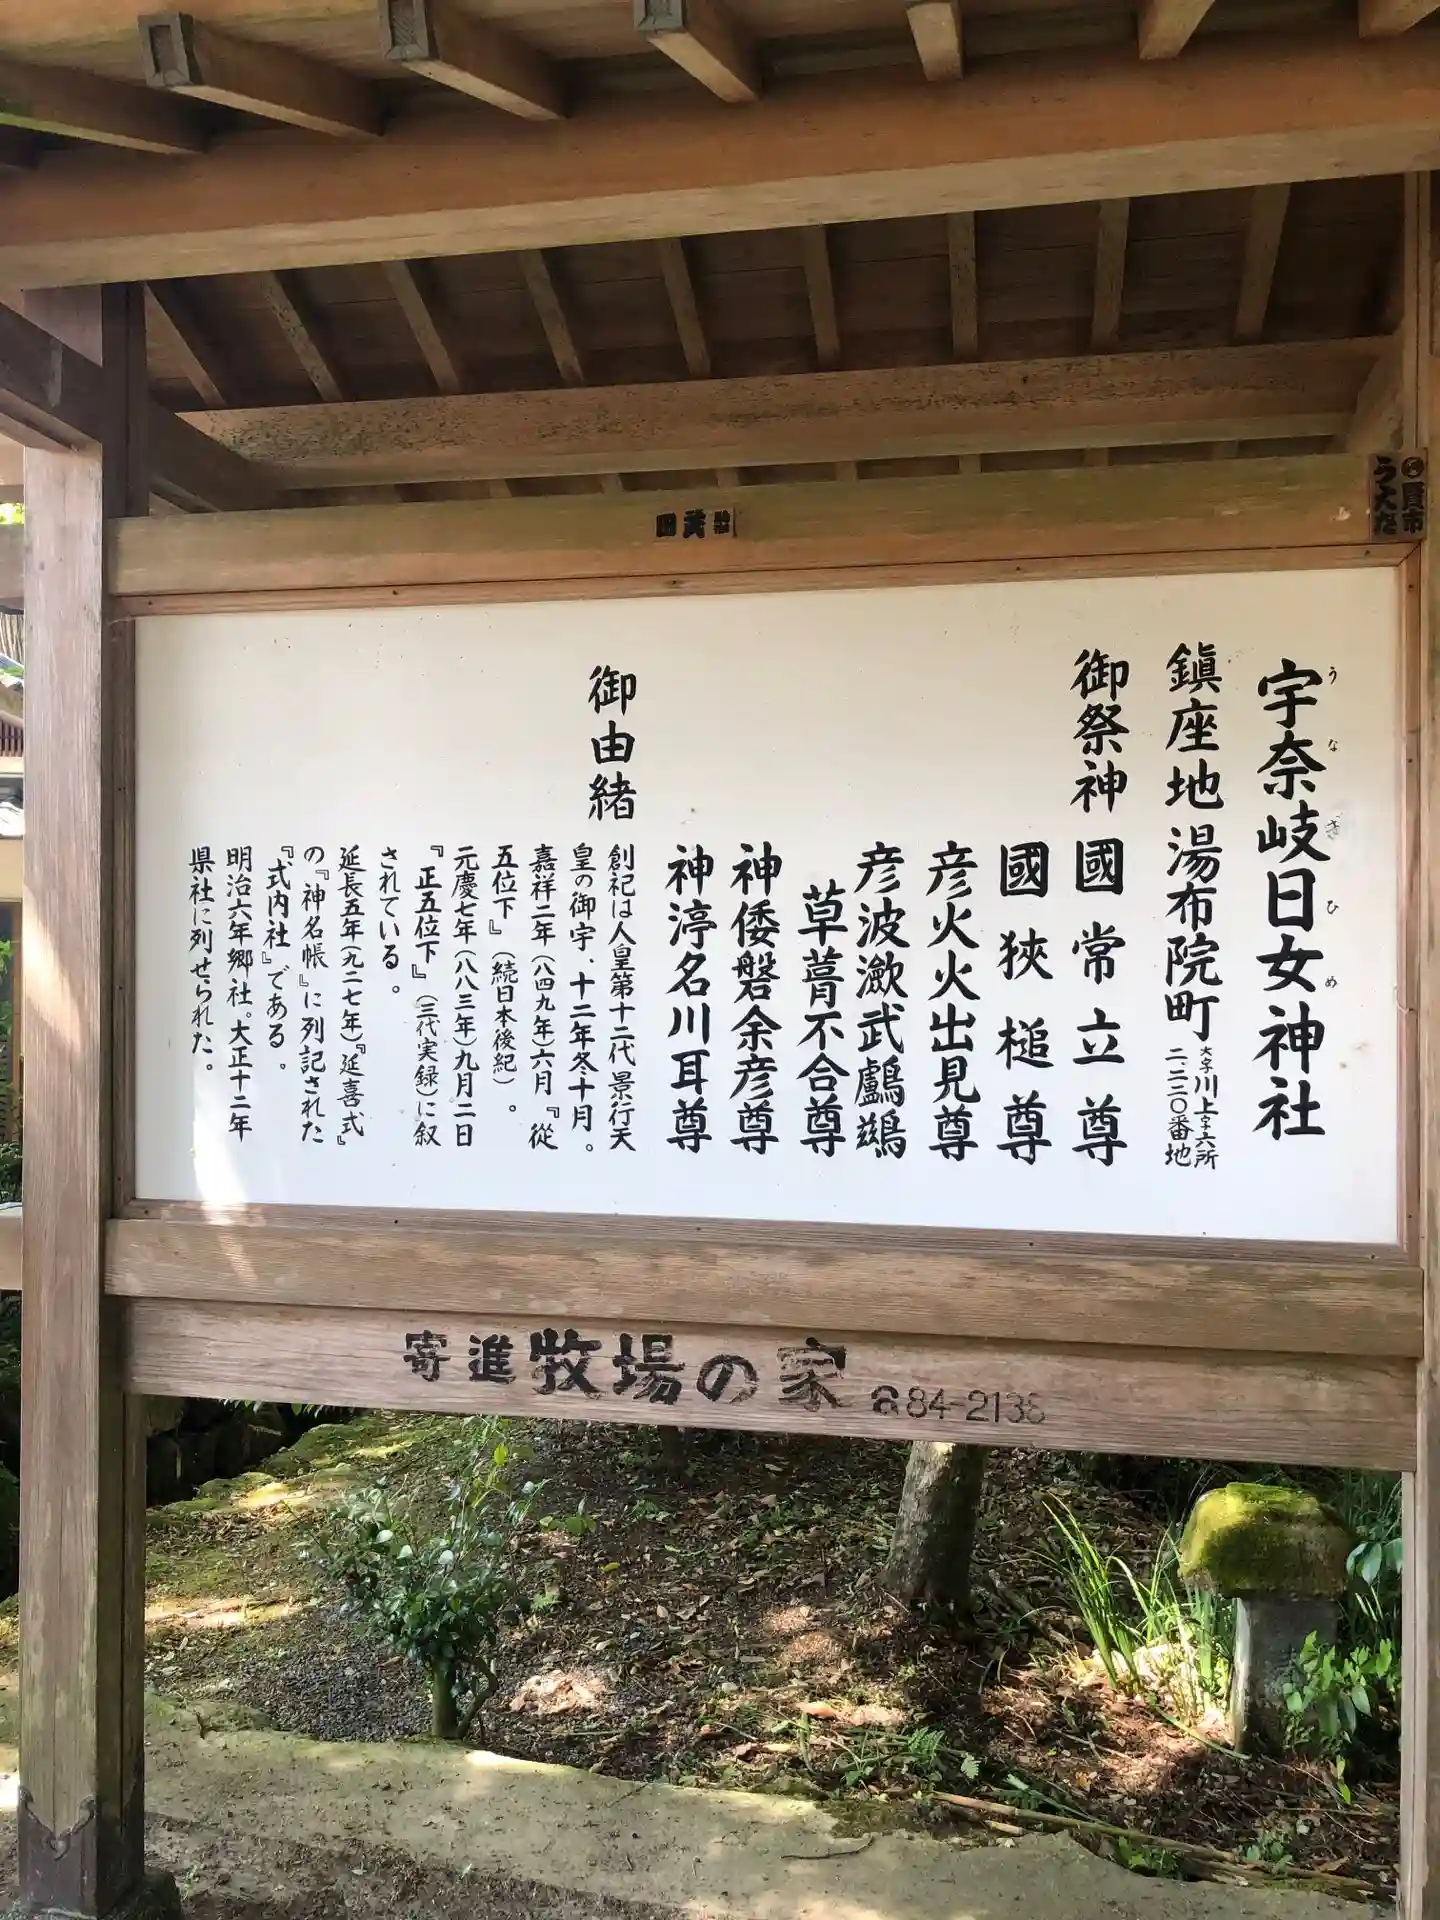 宇奈岐日女神社
うなぎひめ
鎮座地 湯布院町 大字川上字六所
二、二二〇番地
御祭神 國常立尊
國狹槌尊
彦火火出見尊
彦波瀲武鸕鷀
草葺不合尊
神倭磐余彦尊
神渟名川耳尊
御由緒
創祀は人皇第十二代景行天
皇の御宇、十二年冬十月。
嘉祥二年(八四九年)六月『從
五位下』(続日本後紀)。
元慶七年(八八三年)九月二日
『正五位下』(三代実録)に叙
されている。
延長五年(九二七年)『延喜式』
の『神名帳』に列記された
『式内社』である。
明治六年郷社。大正十二年
県社に列せられた。
寄進 牧場の家 ☎84-2138